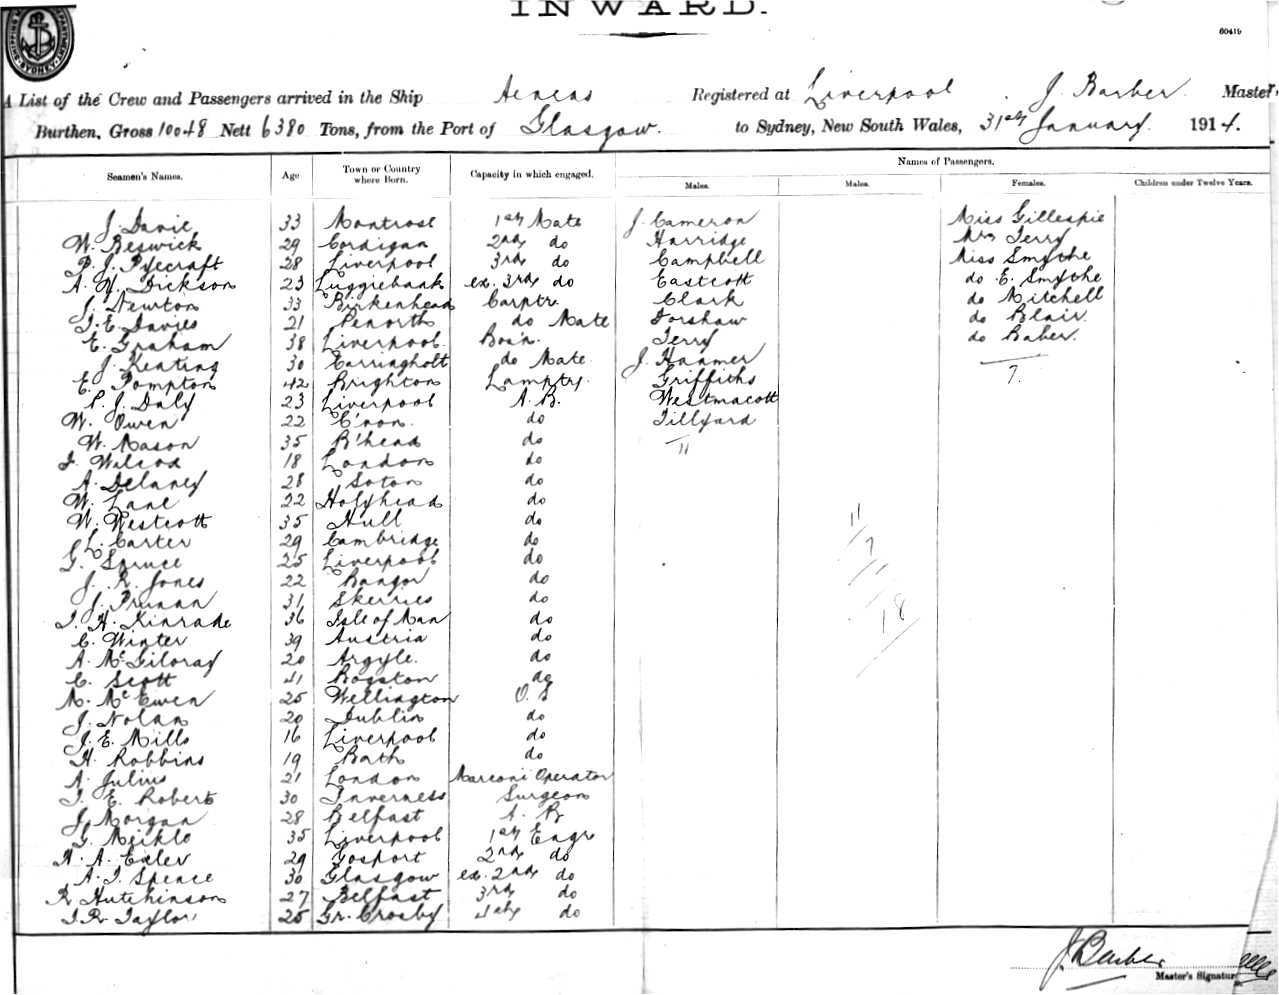 INWARD.
60419
A List of the Crew and Passengers arrived in the Ship Aeneas Registered at Liverpool. J. Barber Master,
Burthen, Gross 10048 Nett 6380 Tons, from the Port of Glasgow. to Sydney, New South Wales, 31st January 1914.
Names of Passengers.
Seamen's Names. Age Town or Country where Born. Capacity in which engaged. Males. Males. Females. Children under Twelve Years.
J. Davie 33 Montrose 1st Mate J. Cameron Miss Gillespie
W. Beswick 29 Cardigan 2nd do Harridge Mrs Terry
P. J. Pyecraft 28 Liverpool 3rd do Campbell Miss Smythe
A. Y. Dickson 23 Luggiebank ex. 3rd do Eastcott do E. Smythe
J. Newton 33 Birkenhead Carptr. Clark do Mitchell
T. E. Davies 21 Penorth do Mate Forshaw do Blair
E. Graham 38 Liverpool Bos'n. Terry do Baber.
J. Keating 30 Carringholt do Mate J. Hanmer
E. Pompton 42 Brighton Lamptr. Griffiths 7.
P. J. Daly 23 Liverpool A.B. Westmacott
W. Owen 22 C'von. do Tillyard
W. Mason 35 B'head do 11
F. Walcox 18 London do
A. Delaney 28 Soton do
W. Lane 22 Holyhead do
W. Westcott 35 Hull do 11
L. Carter 29 Cambridge do 7
G. Spruce 25 Liverpool do
J. R. Jones 22 Bangor do
J. Prunan 31 Skerries do 18
T. H. Kinrade 36 Isle of Man do
C. Winter 39 Austria do
A. McGiloray 20 Argyle. do
C. Scott 41 Bogston do
M. McEwen 25 Wellington O.S
J. Nolan 20 Dublin do
J. E. Mills 16 Liverpool do
H. Robbins 19 Bath do
A. Julius 21 London Marconi Operator
T. E. Roberts 30 Inverness Surgeon
J. Morgan 28 Belfast A. B
G. Meikle 35 Liverpool 1st Engr
A. A. Exler 29 Gosport 2nd do
A. T. Spence 30 Glasgow ex. 2nd do
R. Hutchinson 27 Belfast 3rd do
T. R. Taylor 25 Gt. Crosby 4th do
J. Barber
Master's Signature